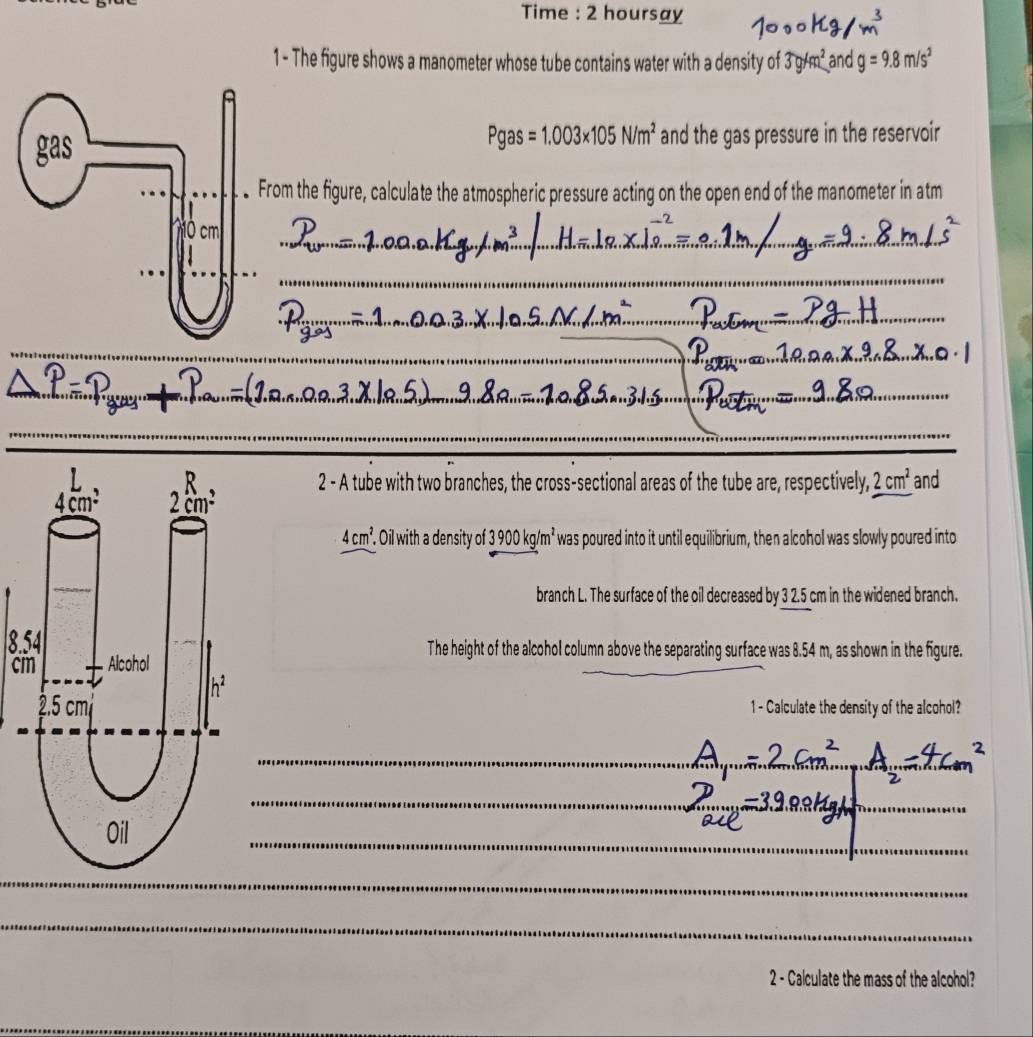 Time : 2 hoursay
1000Kg/m³
1 - The figure shows a manometer whose tube contains water with a density of 3 g/m² and g = 9.8 m/s²
gas
Pgas = 1.003×105 N/m² and the gas pressure in the reservoir
From the figure, calculate the atmospheric pressure acting on the open end of the manometer in atm
10 cm
Pw = 1000Kg/m³ / H = 10 x 10⁻² = 0.1m / g = 9.8 m/s²
Pgas = 1.003 x 105 N/m² Patm = PgH
Patm = 1000 x 9.8 x 0.1
ΔP = Pgas + Pa = (10.003 x 105) 980 = 1085.315 Patm = 980
L R
4 cm² 2 cm²
2 - A tube with two branches, the cross-sectional areas of the tube are, respectively, 2 cm² and
4 cm². Oil with a density of 3 900 kg/m³ was poured into it until equilibrium, then alcohol was slowly poured into
branch L. The surface of the oil decreased by 3 2.5 cm in the widened branch.
The height of the alcohol column above the separating surface was 8.54 m, as shown in the figure.
8.54 cm
Alcohol
h²
2.5 cm
Oil
1 - Calculate the density of the alcohol?
A₁ = 2 cm² A₂ = 4 cm²
Poil = 3900Kg/m
2 - Calculate the mass of the alcohol?